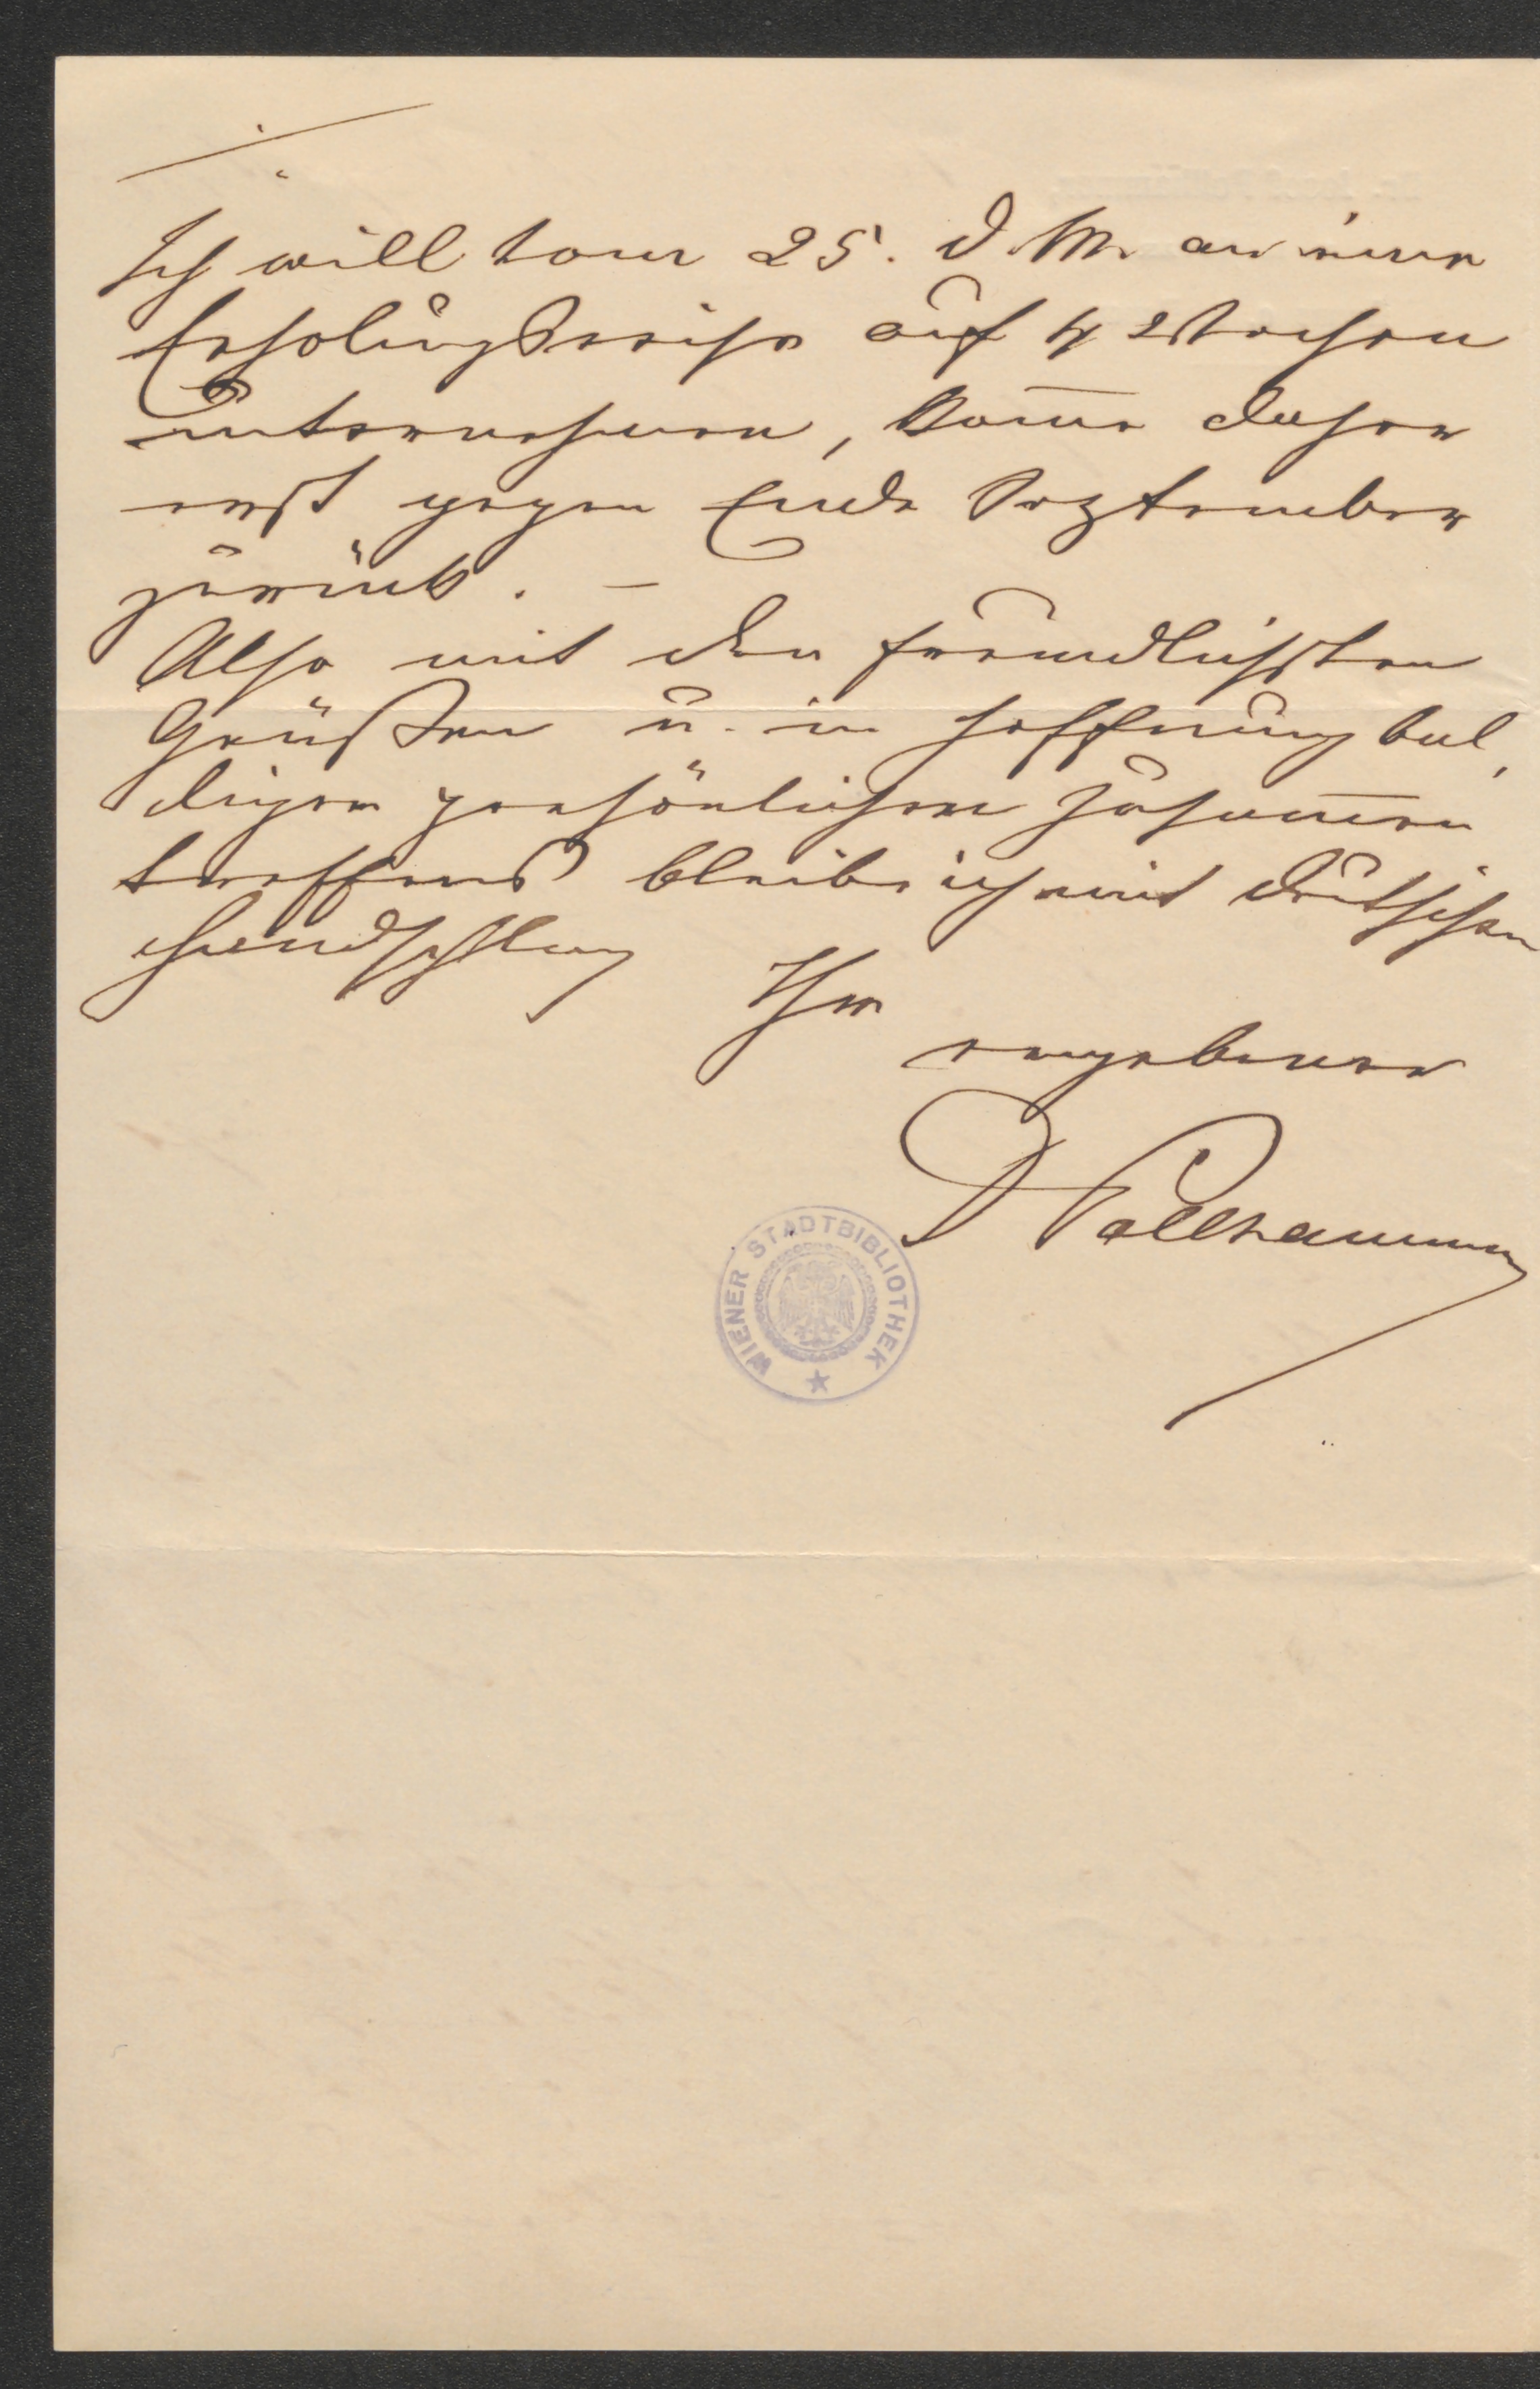 Ich will vom 25. d. M. an eine
Erholungsreise auf 4 Wochen
unternehmen, kom̄e daher
erst gegen Ende September
zurück. –
Also mit den freundlichsten
Grüßen u. in Hoffnung bal,
digen persönlichen Zusam̄en
treffens bleibe ich mit deutschem
Handschlag
Ihr
ergebener
WIENER STADTBIBLIOTHEK